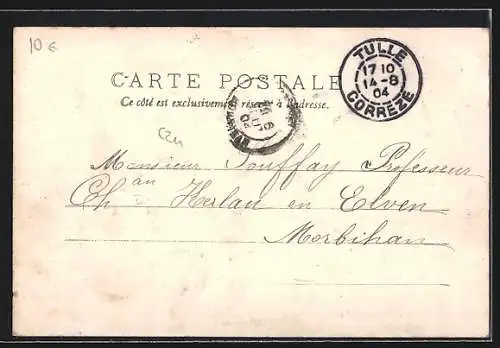 10 €
TULLE
17 10
14-8
04
CORREZE
CARTE POSTALE
Ce côté est exclusivement réservé à l'adresse.
Monsieur Jouffray Professeur
au
Ch Herlau en Elven
Morbihan